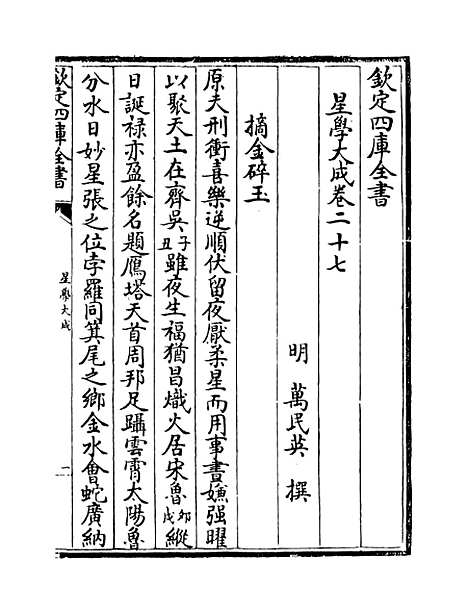 欽定四庫全書
星學大成卷二十七
明 萬民英 撰
摘金碎玉
原夫刑衝喜樂逆順伏留夜厭柔星而用事晝嫌强曜
以聚天土在齊吳子丑雖夜生福猶昌熾火居宋魯卯戌縱
日誕祿亦盈餘名題鴈塔天首周邦足躡雲霄太陽魯
分水日妙星張之位孛羅同箕尾之鄉金水會蛇廣納
欽定四庫全書
星學大成
一